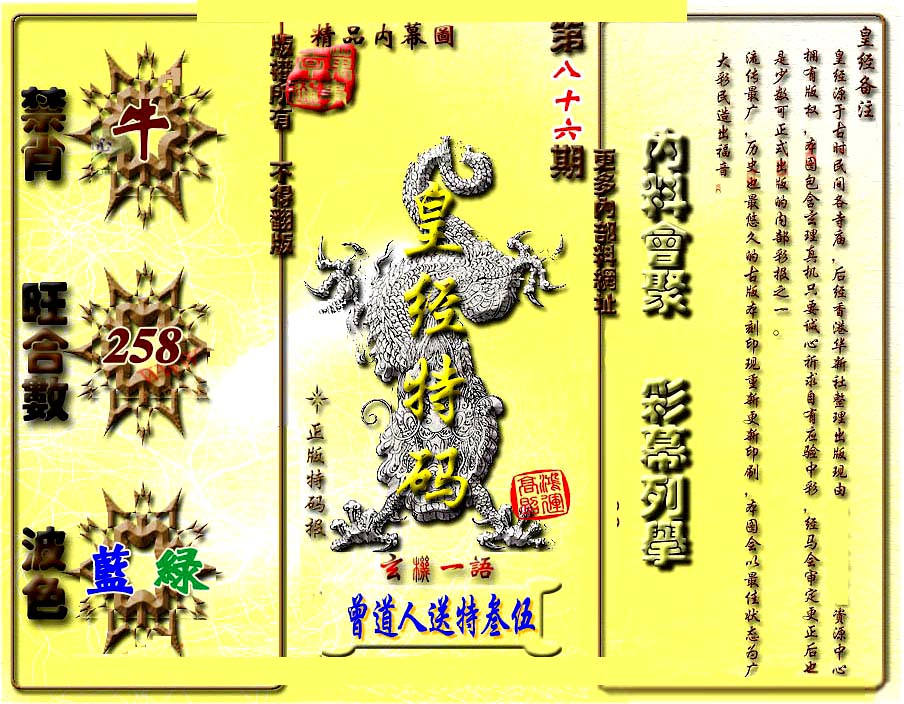 皇经备注
皇经源于古时民间各寺庙，后经香港华新社整理出版现由 资源中心
拥有版权，本图包含玄理真机只要诚心祈求自有应验中彩，经马会审定更正后也
是少数可正式出版的内部彩报之一。
流传最广，历史也最悠久的古版本刻印现重新更新印刷，本图会以最佳状态为广
大彩民造出福音
内料會聚 彩幕列舉
更多內部料網址
第八十六期
精品内幕圖
皇经特码
正版特码报
鴻運高照
玄機一語
曾道人送特叁伍
版權所有 不得翻版
禁肖
牛
旺合數
258
波色
藍 綠